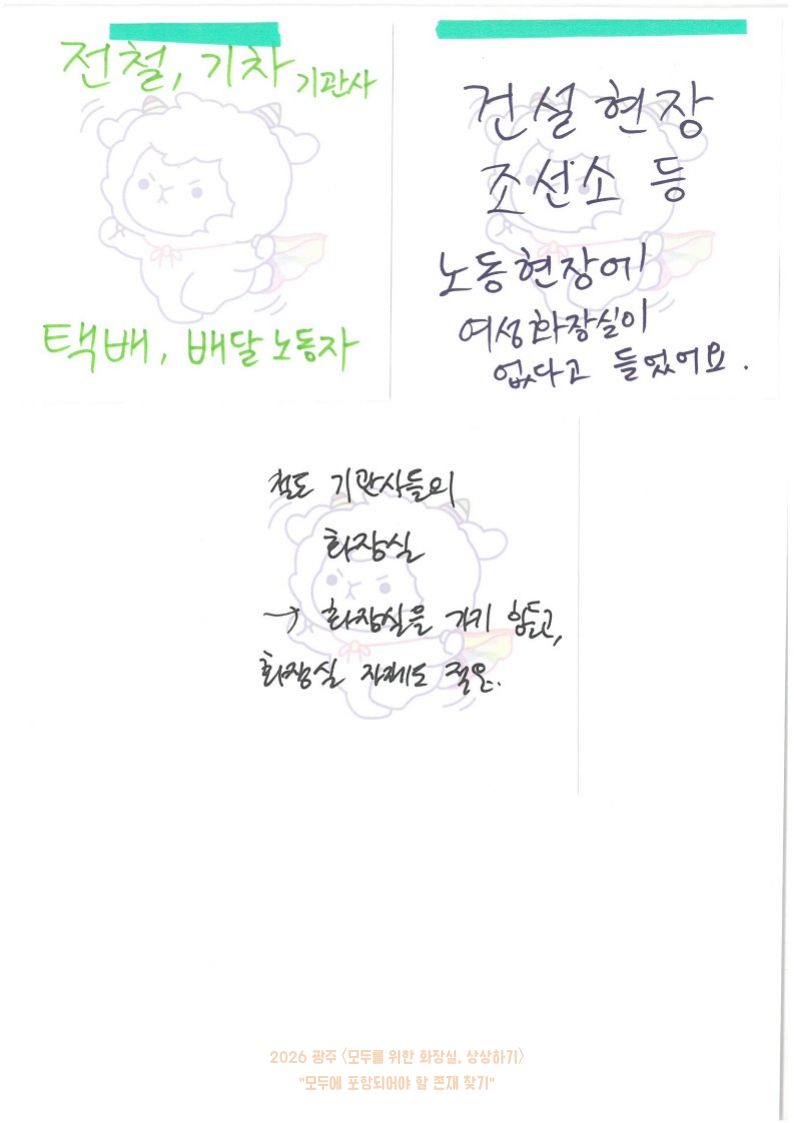 전철, 기차 기관사
택배, 배달 노동자
건설 현장
조선소 등
노동현장에
여성화장실이
없다고 들었어요.
철도 기관사들의
화장실
→ 화장실을 가기 힘들고,
화장실 자체도 적은.
2026 광주 <모두를 위한 화장실, 상상하기>
"모두에 포함되어야 할 존재 찾기"